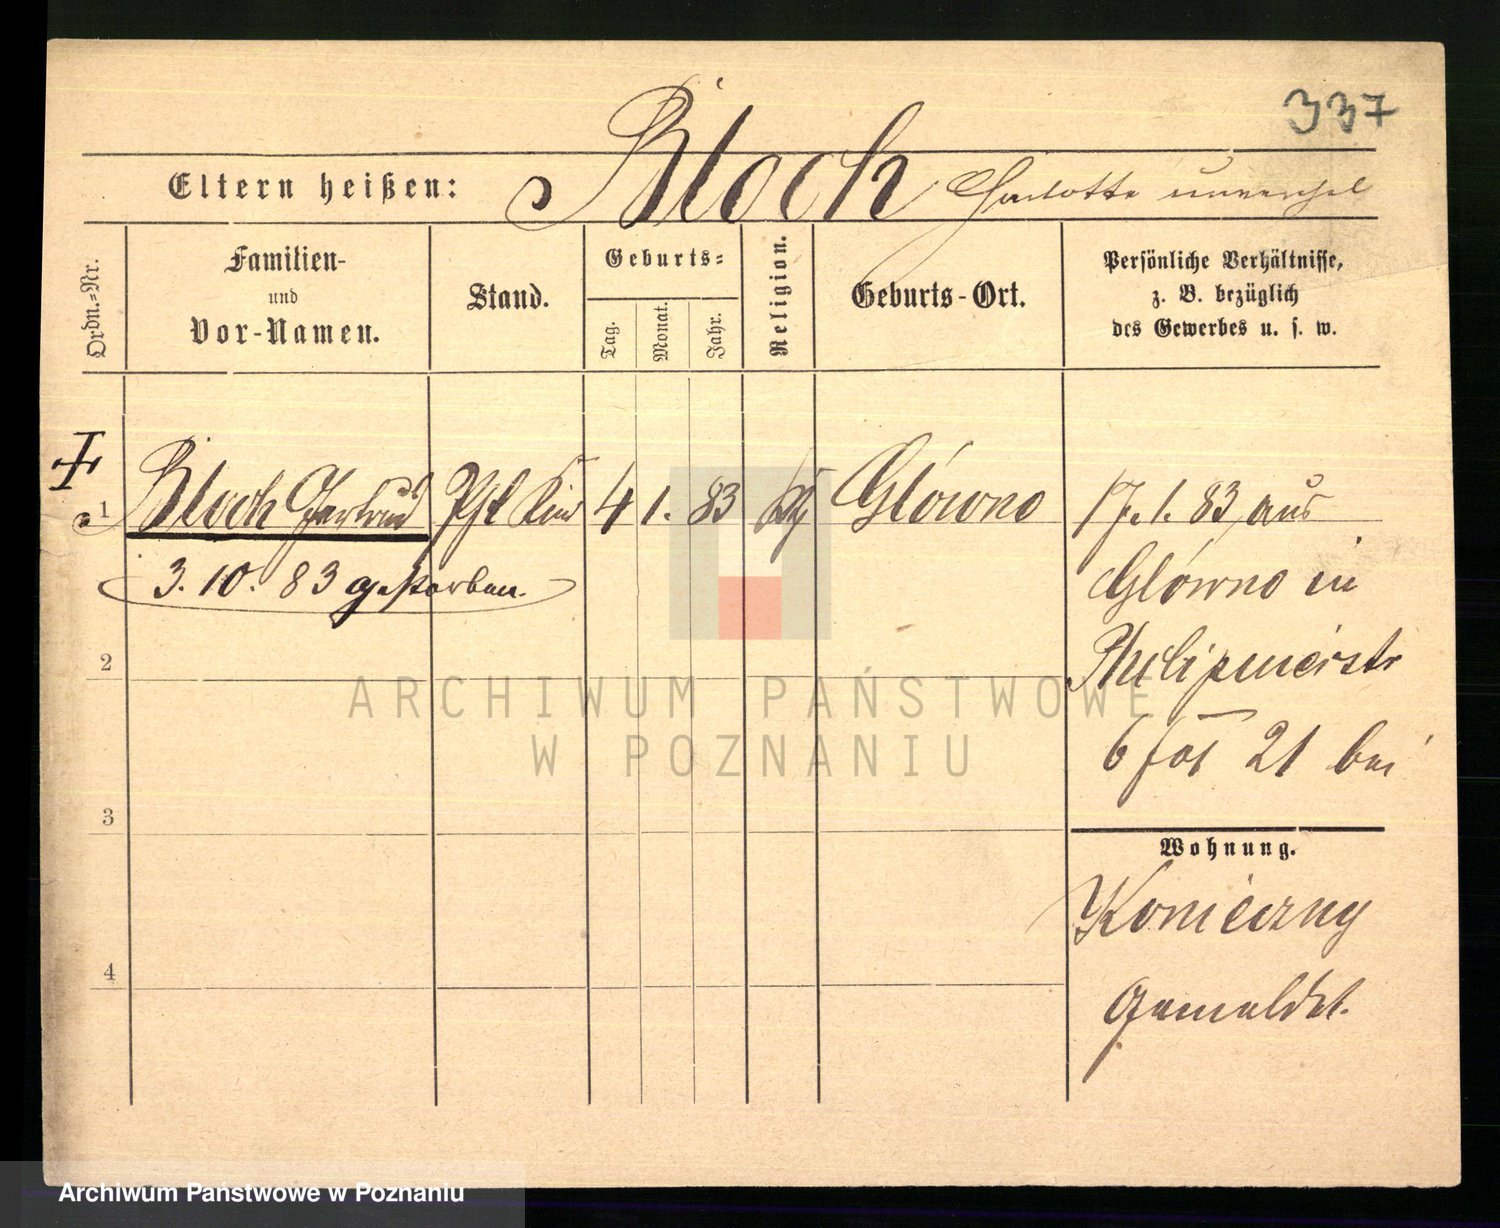 337
Eltern heißen: Bloch Charlotte unverehel
Ordn.=Nr.
Familien-
und
Vor-Namen.
Stand.
Geburts=
Tag.
Monat.
Jahr.
Religion.
Geburts-Ort.
Persönliche Verhältnisse,
z. B. bezüglich
des Gewerbes u. s. w.
1 Bloch Gertrud Pfl Kind 4 1. 83 Główno 17.1.83 aus
3. 10. 83 gestorben.
Główno in
2
6 21 bei
3
Wohnung.
Konieczny
4
Gemeldet.
ARCHIWUM PAŃSTWOWE
W POZNANIU
Archiwum Państwowe w Poznaniu